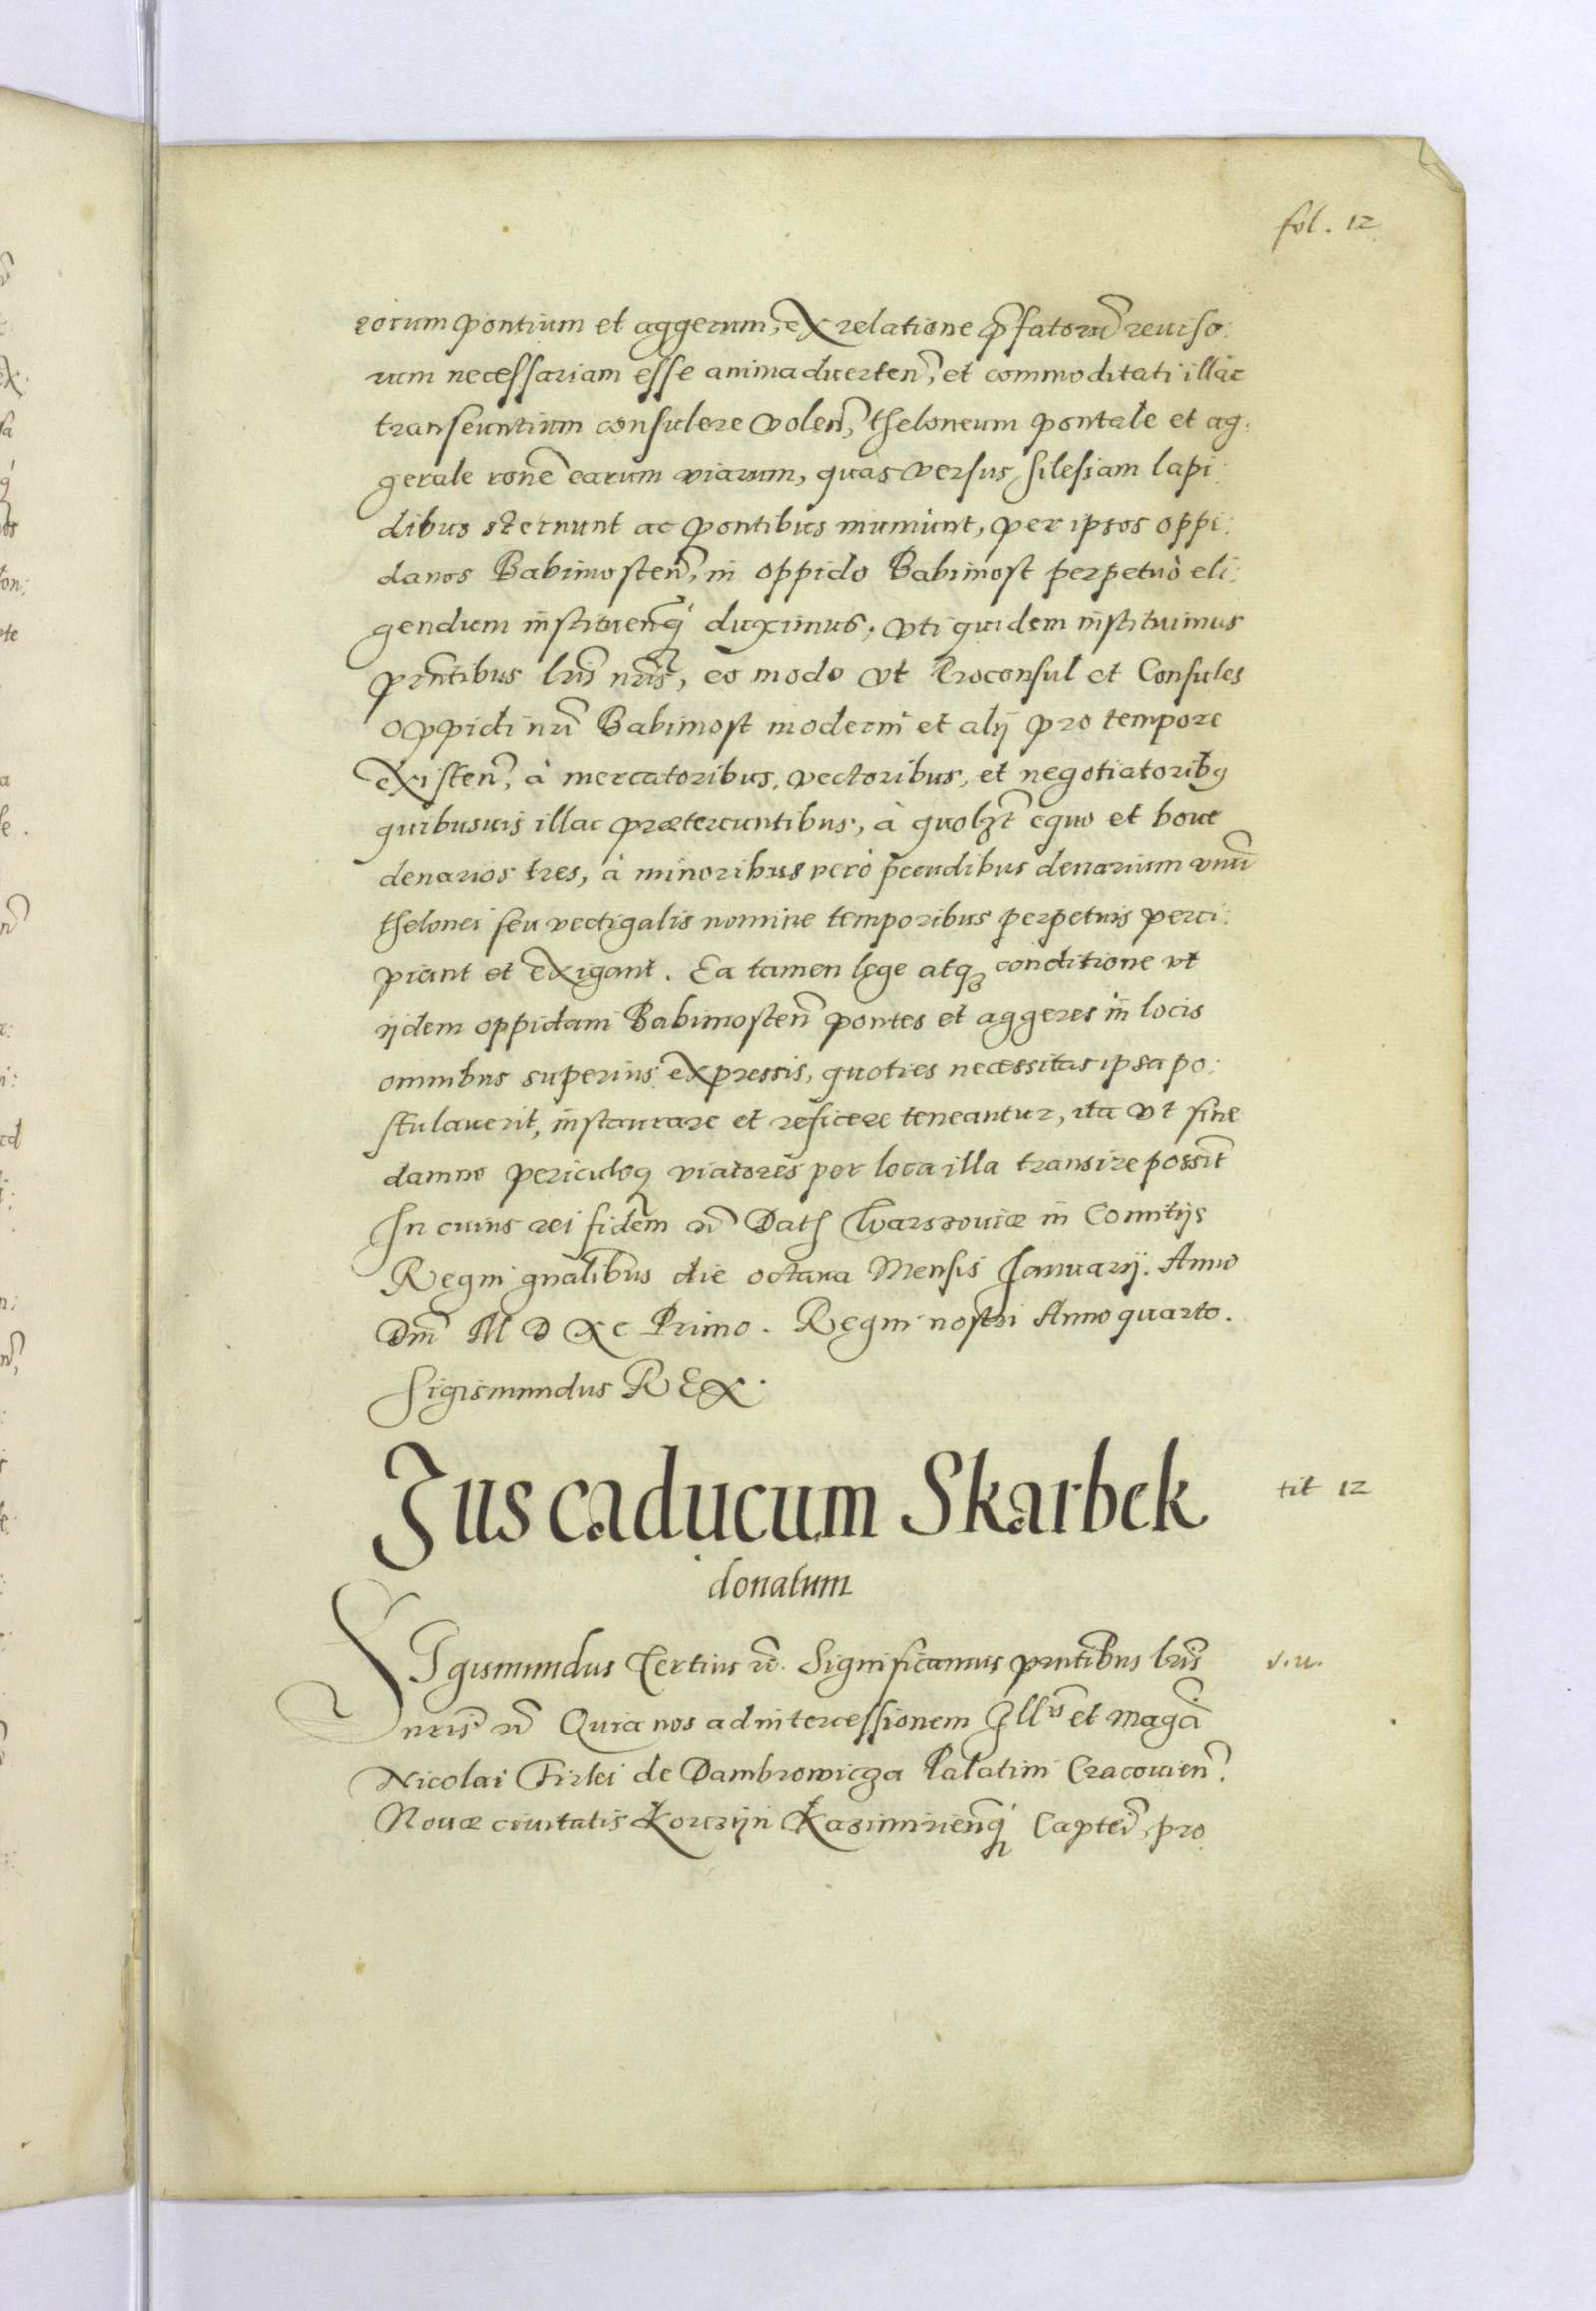 fol. 12
eorum pontium et aggerum, ex relatione p̄fatorũ reuiso:
rum necessariam esse animaduerten̄, et commoditati illac
transeuntium consulere volen̄, theloneum pontale et ag:
gerale rōne earum viarum, quas versus Silesiam lapi:
dibus sternunt ac pontibus muniunt, per ipsos oppi:
danos Babimosten̄, in oppido Babimost perpetuò eli:
gendum instituen̄q́ duximus, vti quidem instituimus
prn̄tibus lrīs nrīs, eo modo vt Proconsul et Consules
oppidi nrī Babimost moderni et alij pro tempore
existen̄, à mercatoribus, vectoribus, et negotiatoribꝯ
quibusuis illac prætereuntibus, à quolꝫt equo et boue
denarios tres, à minoribus verò pecudibus denarium vnũ
thelonei seu vectigalis nomine temporibus perpetuis perci:
piant et exigant. Ea tamen lege atqꝫ conditione vt
ijdem oppidani Babimosten̄ pontes et aggeres in locis
omnibus superius expressis, quoties necessitas ipsa po:
stulauerit, instaurare et reficere teneantur, ita vt sine
damno periculoq viatores per loca illa transire possint
In cuius rei fidem rc̄ Dat Warszouiæ in Comitijs
Regni gnālibus die octaua Mensis Januarij. Anno
Dnī M D XC Primo. Regni nostri Anno quarto.
Sigismundus REX.
Jus caducum Skarbek
tit 12
donatum
SIgismundus Tertius rc̄. Significamus prn̄tibus lrīs
v.u.
nrīs rc̄ Quia nos ad intercessionem Illis et Magcī
Nicolai Firlei de Dambrowicza Palatini Cracouien̄.
Nouæ ciuitatis Korczijn Kazimirien̄q́ Captei, pro